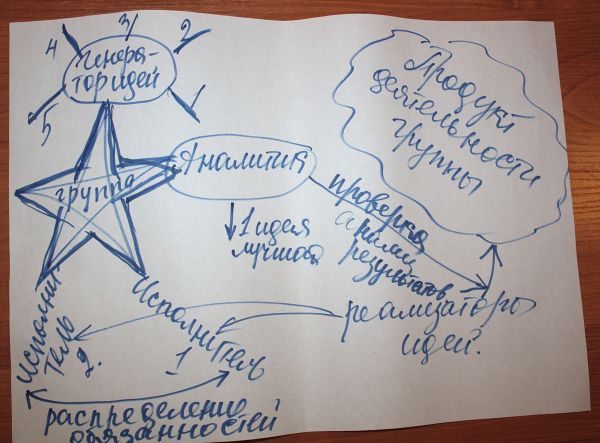 4
3
2
Генера-
тор идей
5
1
Продукт
деятельности
группы
группа
Аналитик
1 идея
лучшая
проверка
результатов
реализаторы
идей.
Исполни
тель
2.
Исполнитель
1
распределение
обязанностей